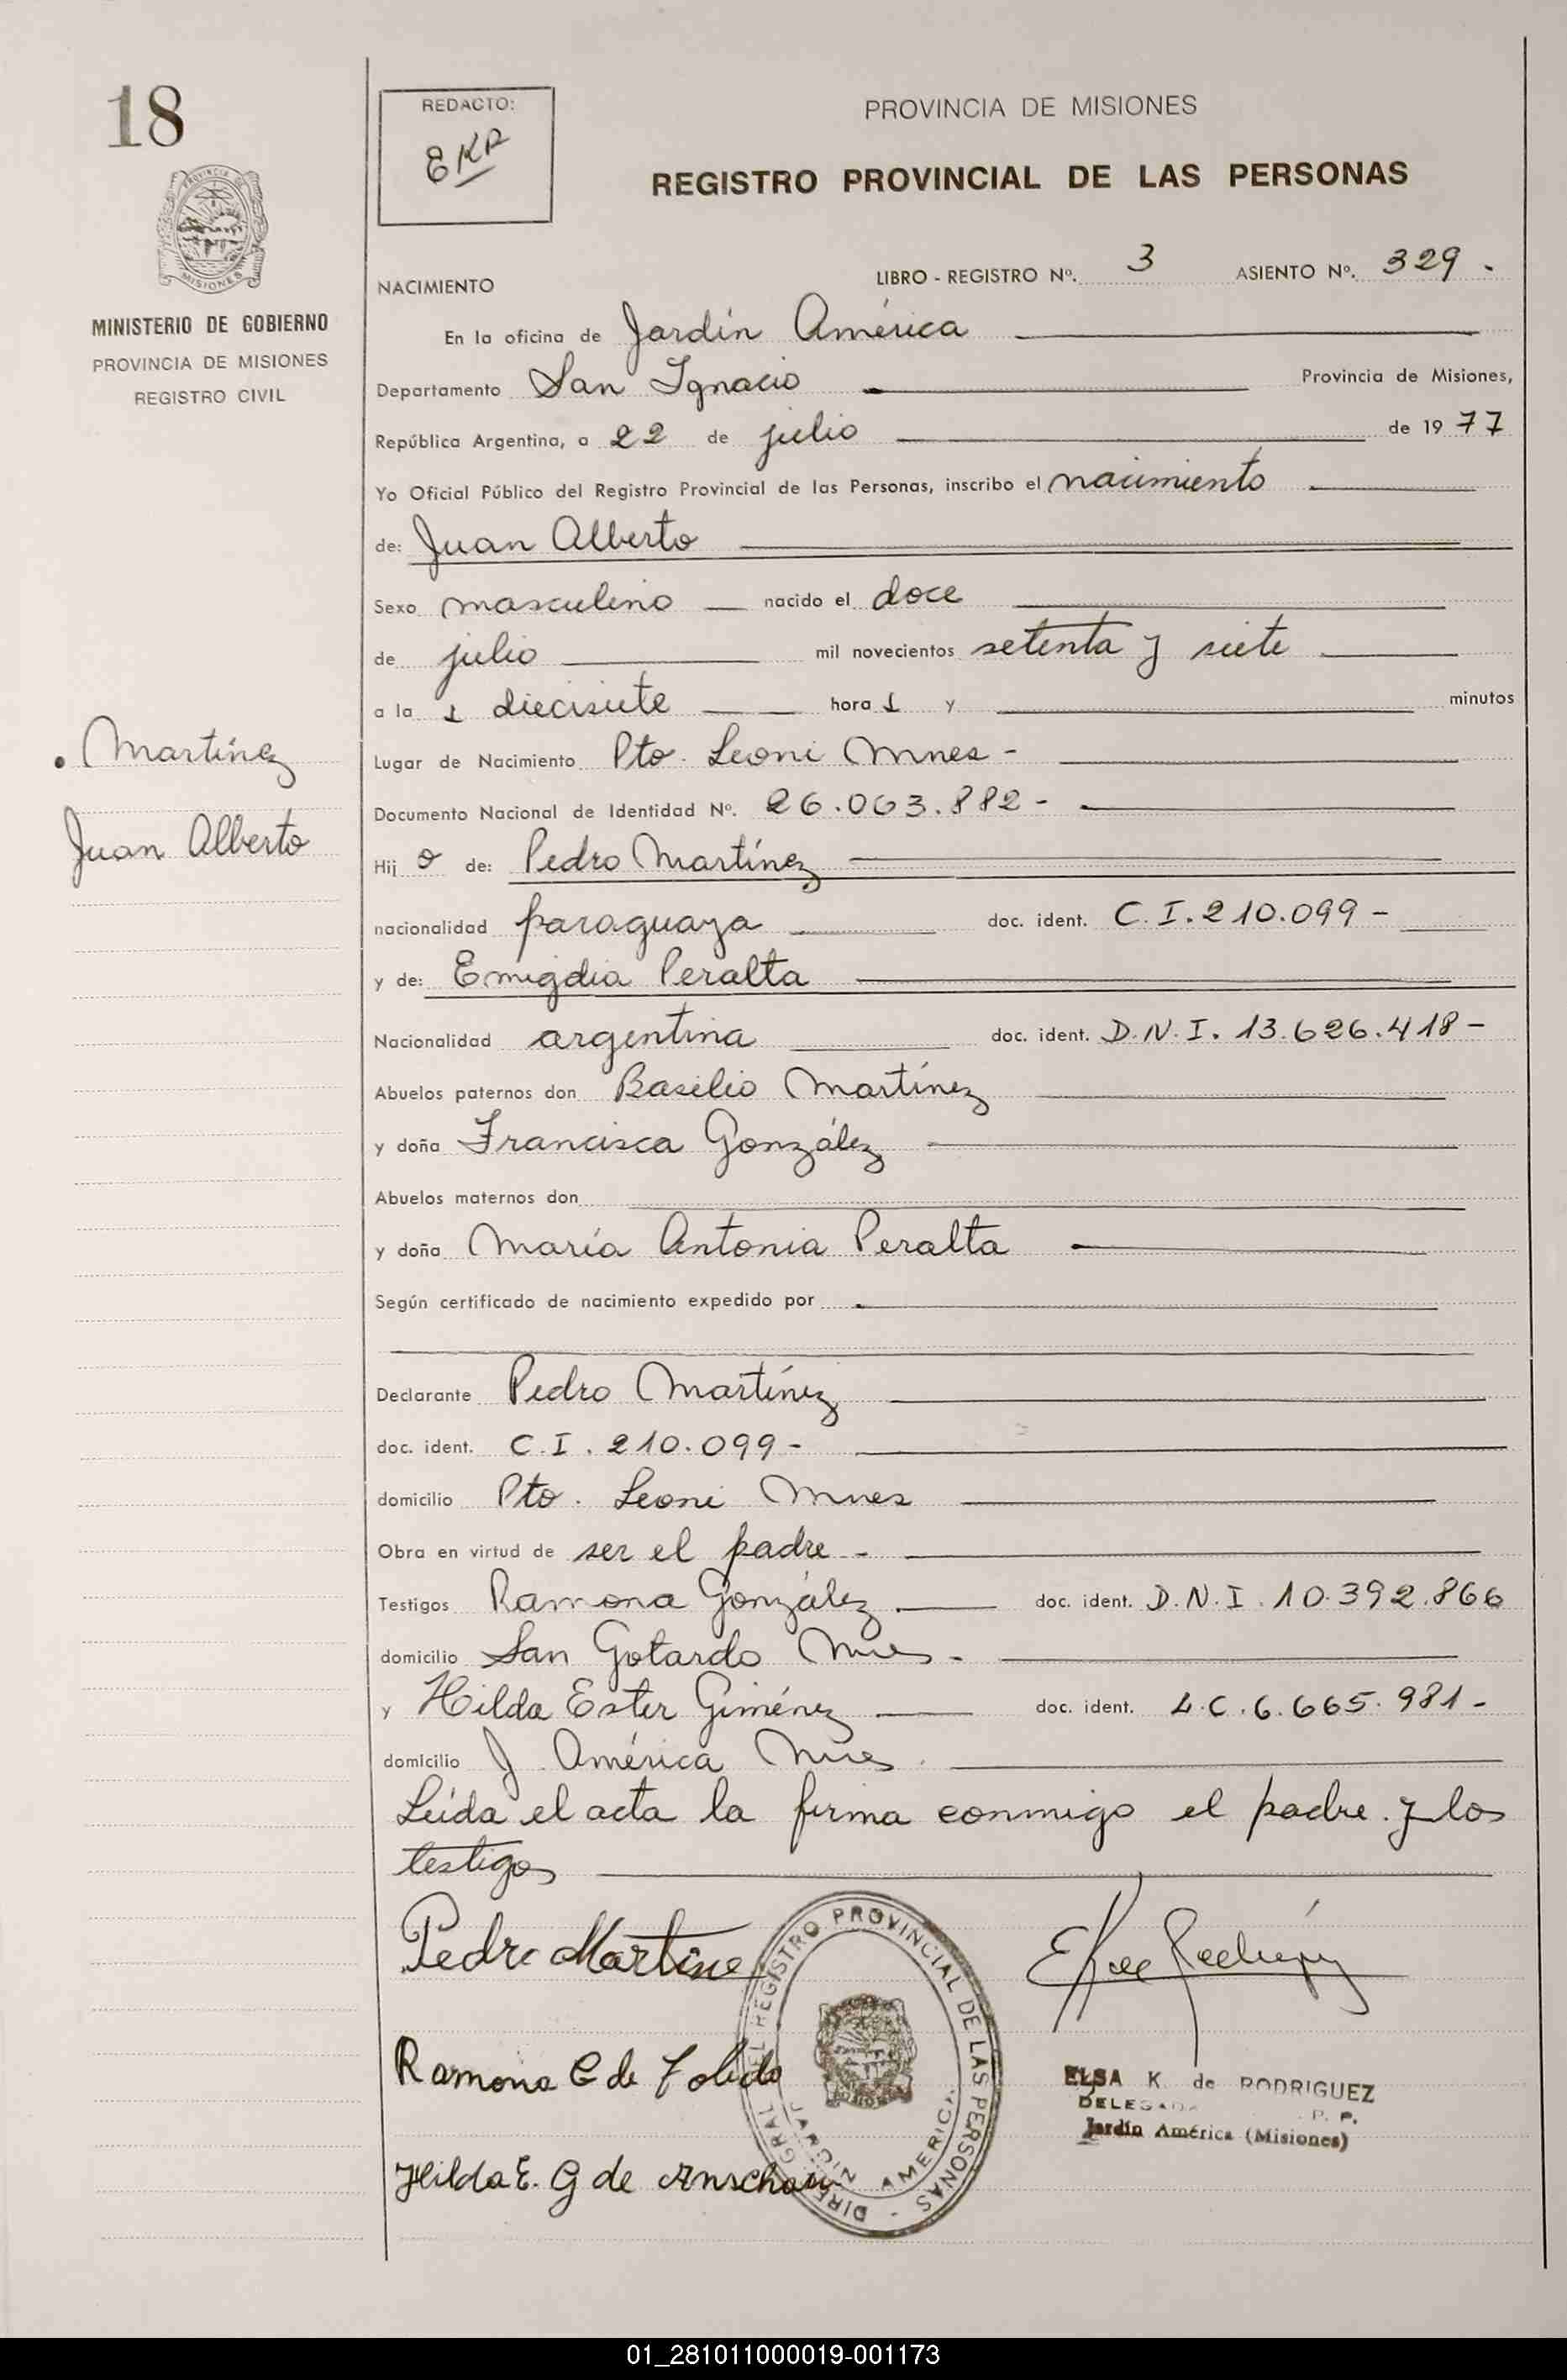 18
REDACTO:
EKR
PROVINCIA DE MISIONES
REGISTRO PROVINCIAL DE LAS PERSONAS
PROVINCIA DE
MISIONES
MINISTERIO DE GOBIERNO
PROVINCIA DE MISIONES
REGISTRO CIVIL
NACIMIENTO LIBRO - REGISTRO Nº. 3 ASIENTO Nº. 329 .
En la oficina de Jardín América
Departamento San Ignacio Provincia de Misiones,
República Argentina, a 22 de julio de 19 77
Yo Oficial Público del Registro Provincial de las Personas, inscribo el nacimiento
de: Juan Alberto
Sexo masculino nacido el doce
de julio mil novecientos setenta y siete
a la s diecisiete hora s y minutos
Martínez
Juan Alberto
Lugar de Nacimiento Pto. Leoni Mnes -
Documento Nacional de Identidad Nº. 26.063.882 -
Hij o de: Pedro Martínez
nacionalidad paraguaya doc. ident. C.I. 210.099 -
y de: Emigdia Peralta
Nacionalidad argentina doc. ident. D.N.I. 13.626.418 -
Abuelos paternos don Basilio Martínez
y doña Francisca González
Abuelos maternos don
y doña María Antonia Peralta
Según certificado de nacimiento expedido por
Declarante Pedro Martínez
doc. ident. C.I. 210.099 -
domicilio Pto. Leoni Mnes
Obra en virtud de ser el padre -
Testigos Ramona González doc. ident. D.N.I. 10.392.866
domicilio San Gotardo Mnes -
y Hilda Ester Giménez doc. ident. L.C. 6.665.981 -
domicilio J. América Mnes.
Leída el acta la firma conmigo el padre y los
testigos
Pedro Martine
Ramona G de Toledo
Hilda E. G de Anschau
DIREC. GRAL DEL REGISTRO PROVINCIAL DE LAS PERSONAS -
JARDIN AMERICA
ELSA K. de RODRIGUEZ
DELEGADA P. P.
Jardín América (Misiones)
01_281011000019-001173